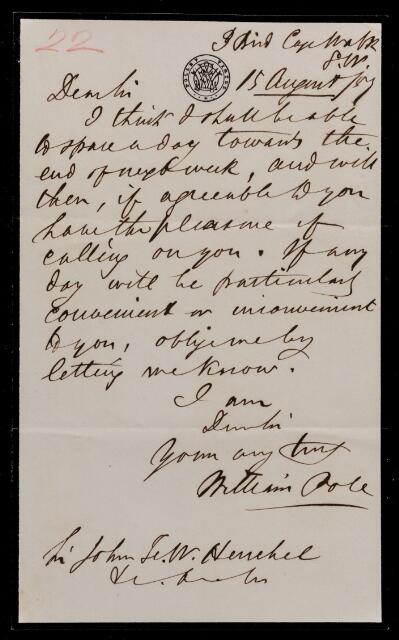 22
3 Bird Cage Walk
S.W.
15 August /57
Dear Sir
I think I shall be able
to spare a day towards the
end of next week, and will
then, if agreeable to you
have the pleasure of
calling on you. If any
day will be particularly
convenient or inconvenient
to you, oblige me by
letting me know.
I am
Dear Sir
Yours very truly
William Pole
Sir John F. W. Herschel